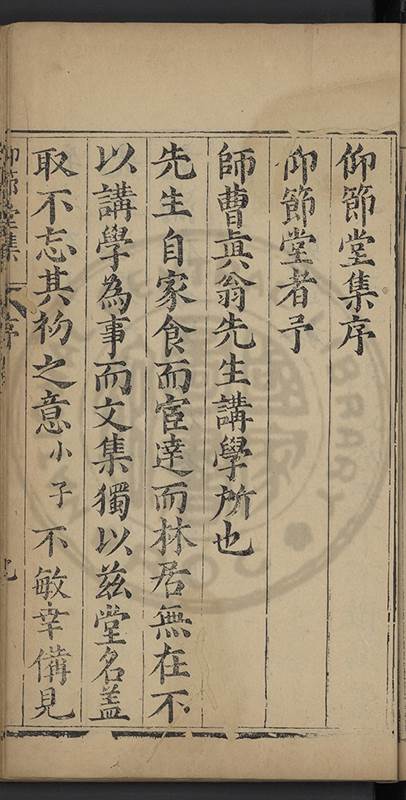 仰節堂集序
仰節堂者予
師曹眞翁先生講學所也
先生自家食而宦達而林居無在不
以講學為事而文集獨以兹堂名蓋
取不忘其初之意小子不敏幸備見
仰節堂集 序